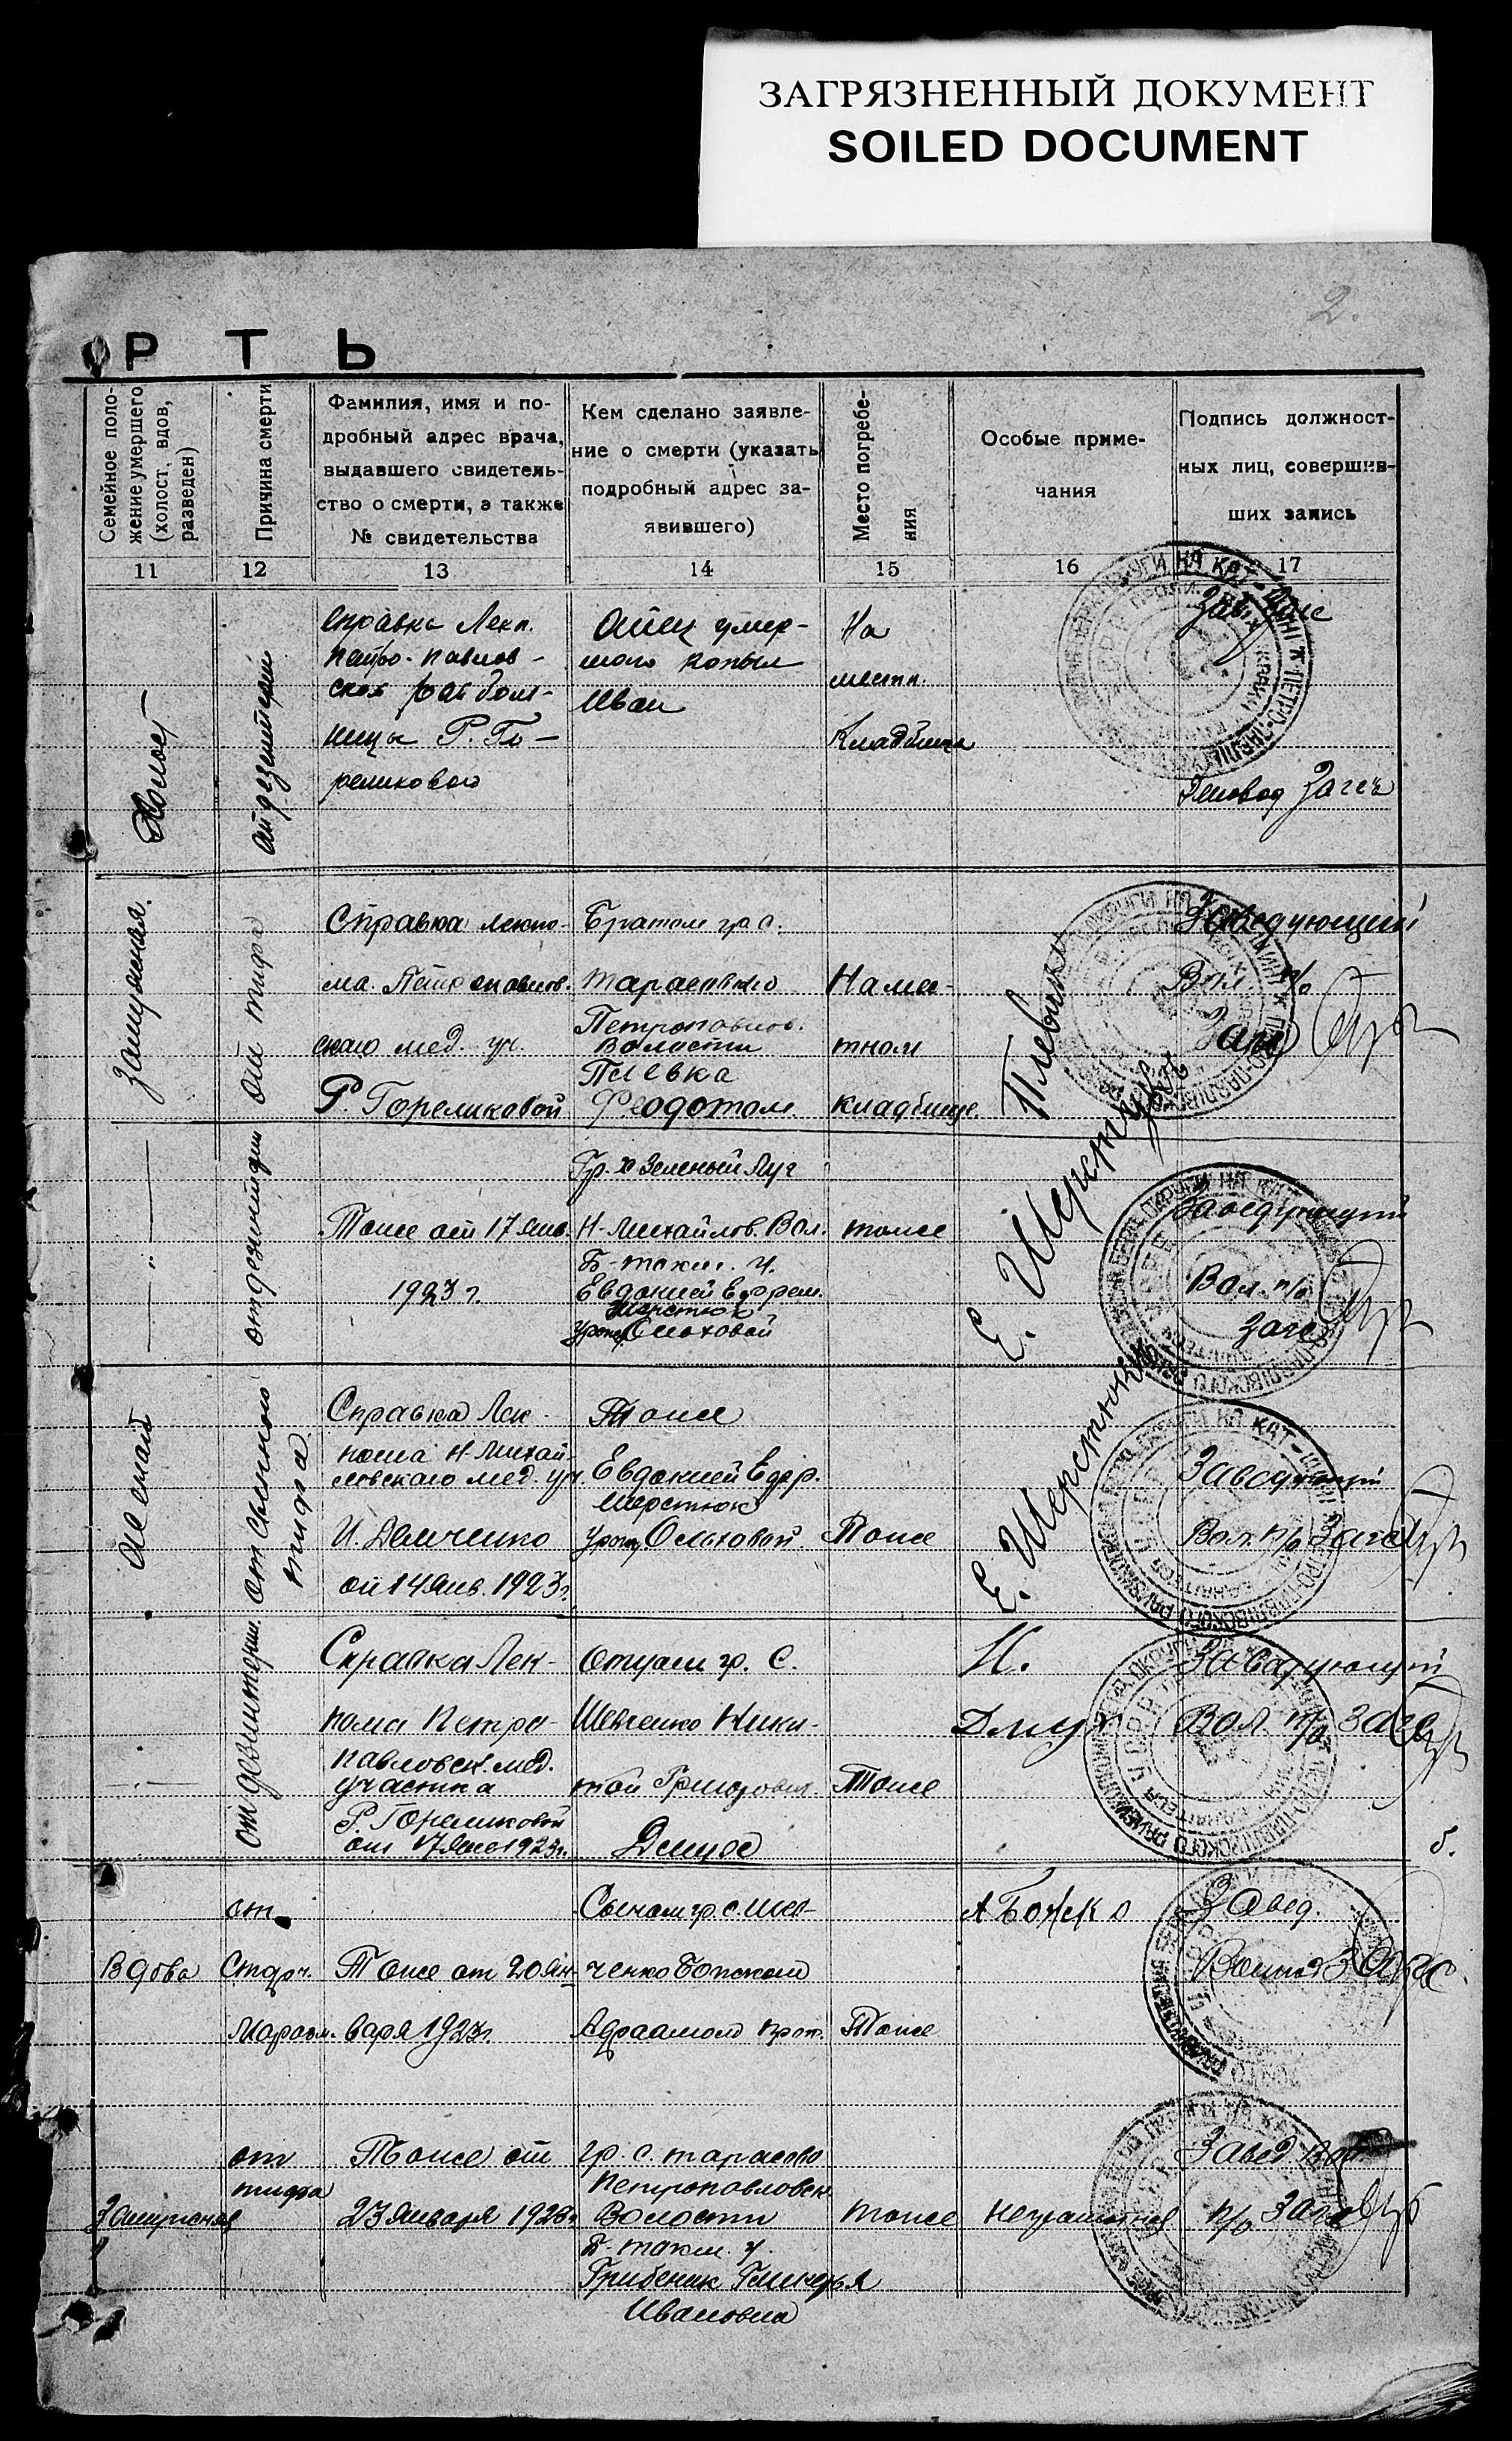 ЗАГРЯЗНЕННЫЙ ДОКУМЕНТ
SOILED DOCUMENT
2.
ОРТЬ
Семейное поло-
жение умершего
(холост, вдов,
разведен)
Причина смерти
Фамилия, имя и по-
дробный адрес врача,
выдавшего свидетель-
ство о смерти, а также
№ свидетельства
Кем сделано заявле-
ние о смерти (указать
подробный адрес за-
явившего)
Место погребе-
ния
Особые приме-
чания
Подпись должност-
ных лиц, совершив-
ших запись
11
12
13
14
15
16
17
Холост
от дезентерии
Справка Лекп.
Петро-павлов-
ской рай боль-
ницы Р. Го-
реликового
Отец умер-
шого Копыл
Иван
На
местн.
Кладбище
Зав. Загс
Деловод Загса
Замужная.
от тифа
Справка лекпо-
ма. Петропавлов.
скаго мед. уч.
Р. Гореликовой
Братом гр. с.
Тарасовкого
Петропавлов.
Волости
Плевка
Феодотом
На мес-
тном
кладбище.
Плевка
Заведующий
Вол п/о
Загс
— " —
от дезентерии
Тоже от 17 янв.
1923 г.
Гр. х Зеленый Луг
Н-Михайлов. Вол.
Б-токм. у.
Евдокией Ефрем.
Шерстюк
урож. Ольховой
тоже
Е. Шерстюк
Заведующий
Вол. п/о
Загс
от сыпного
тифа
Справка Лек-
пома Н-Михай-
ловскаго мед. уч.
И. Демченко
от 14 янв. 1923 г.
Тоже
Евдокией Ефр.
Шерстюк
урож. Ольховой.
Тоже
Е. Шерстюк
Заведующий
Вол. п/о Загса
— " —
от дезинтерии.
Справка Лек-
пома Петро-
павловск. мед.
участка
Р. Гореликовой
от 17 янв 1923 г.
Отцом гр. С.
Шевченко Ники-
той Григоров.
Тоже
Н.
Заведующий
Вол. п/о Загс
б.
Вдова
от
Старч.
Маразм.
Тоже от 20 ян-
варя 1923 г.
Сыном гр. с. Шев-
ченко Божском
Тоже
А Божко
Завед.
Замужная
от
тифа
Тоже от
23 Января 1923 г.
гр. с. Тарасово
Петропавловск.
Волости
Б-токм. у.
Грибеник Гликерья
Ивановна
тоже
неграмотная
Завед Вол
п/о Загса